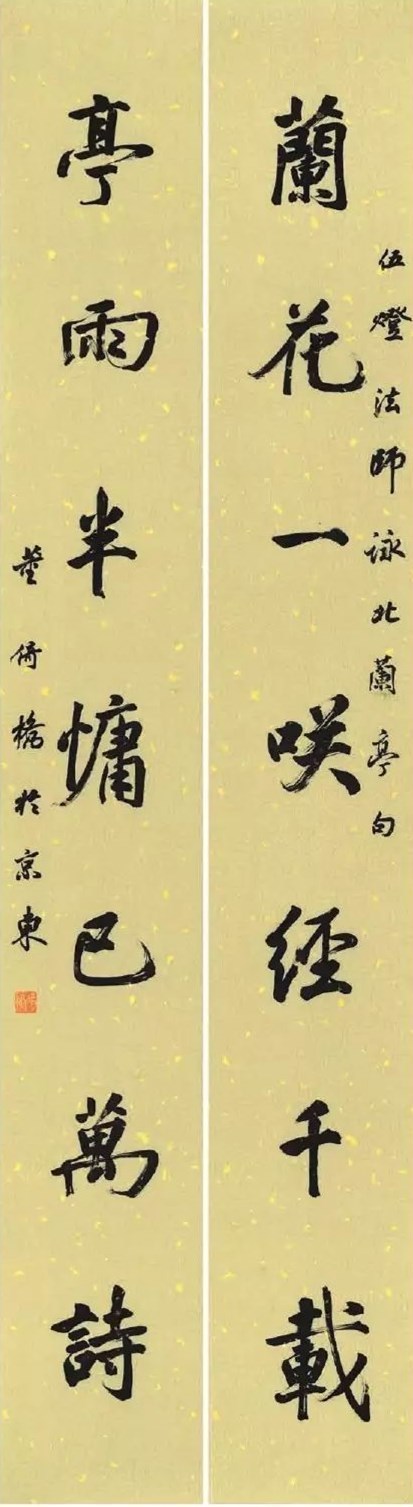 蘭花一咲經千載
伍燈法師詠北蘭亭句
亭雨半慵已萬詩
董倚橋於京東